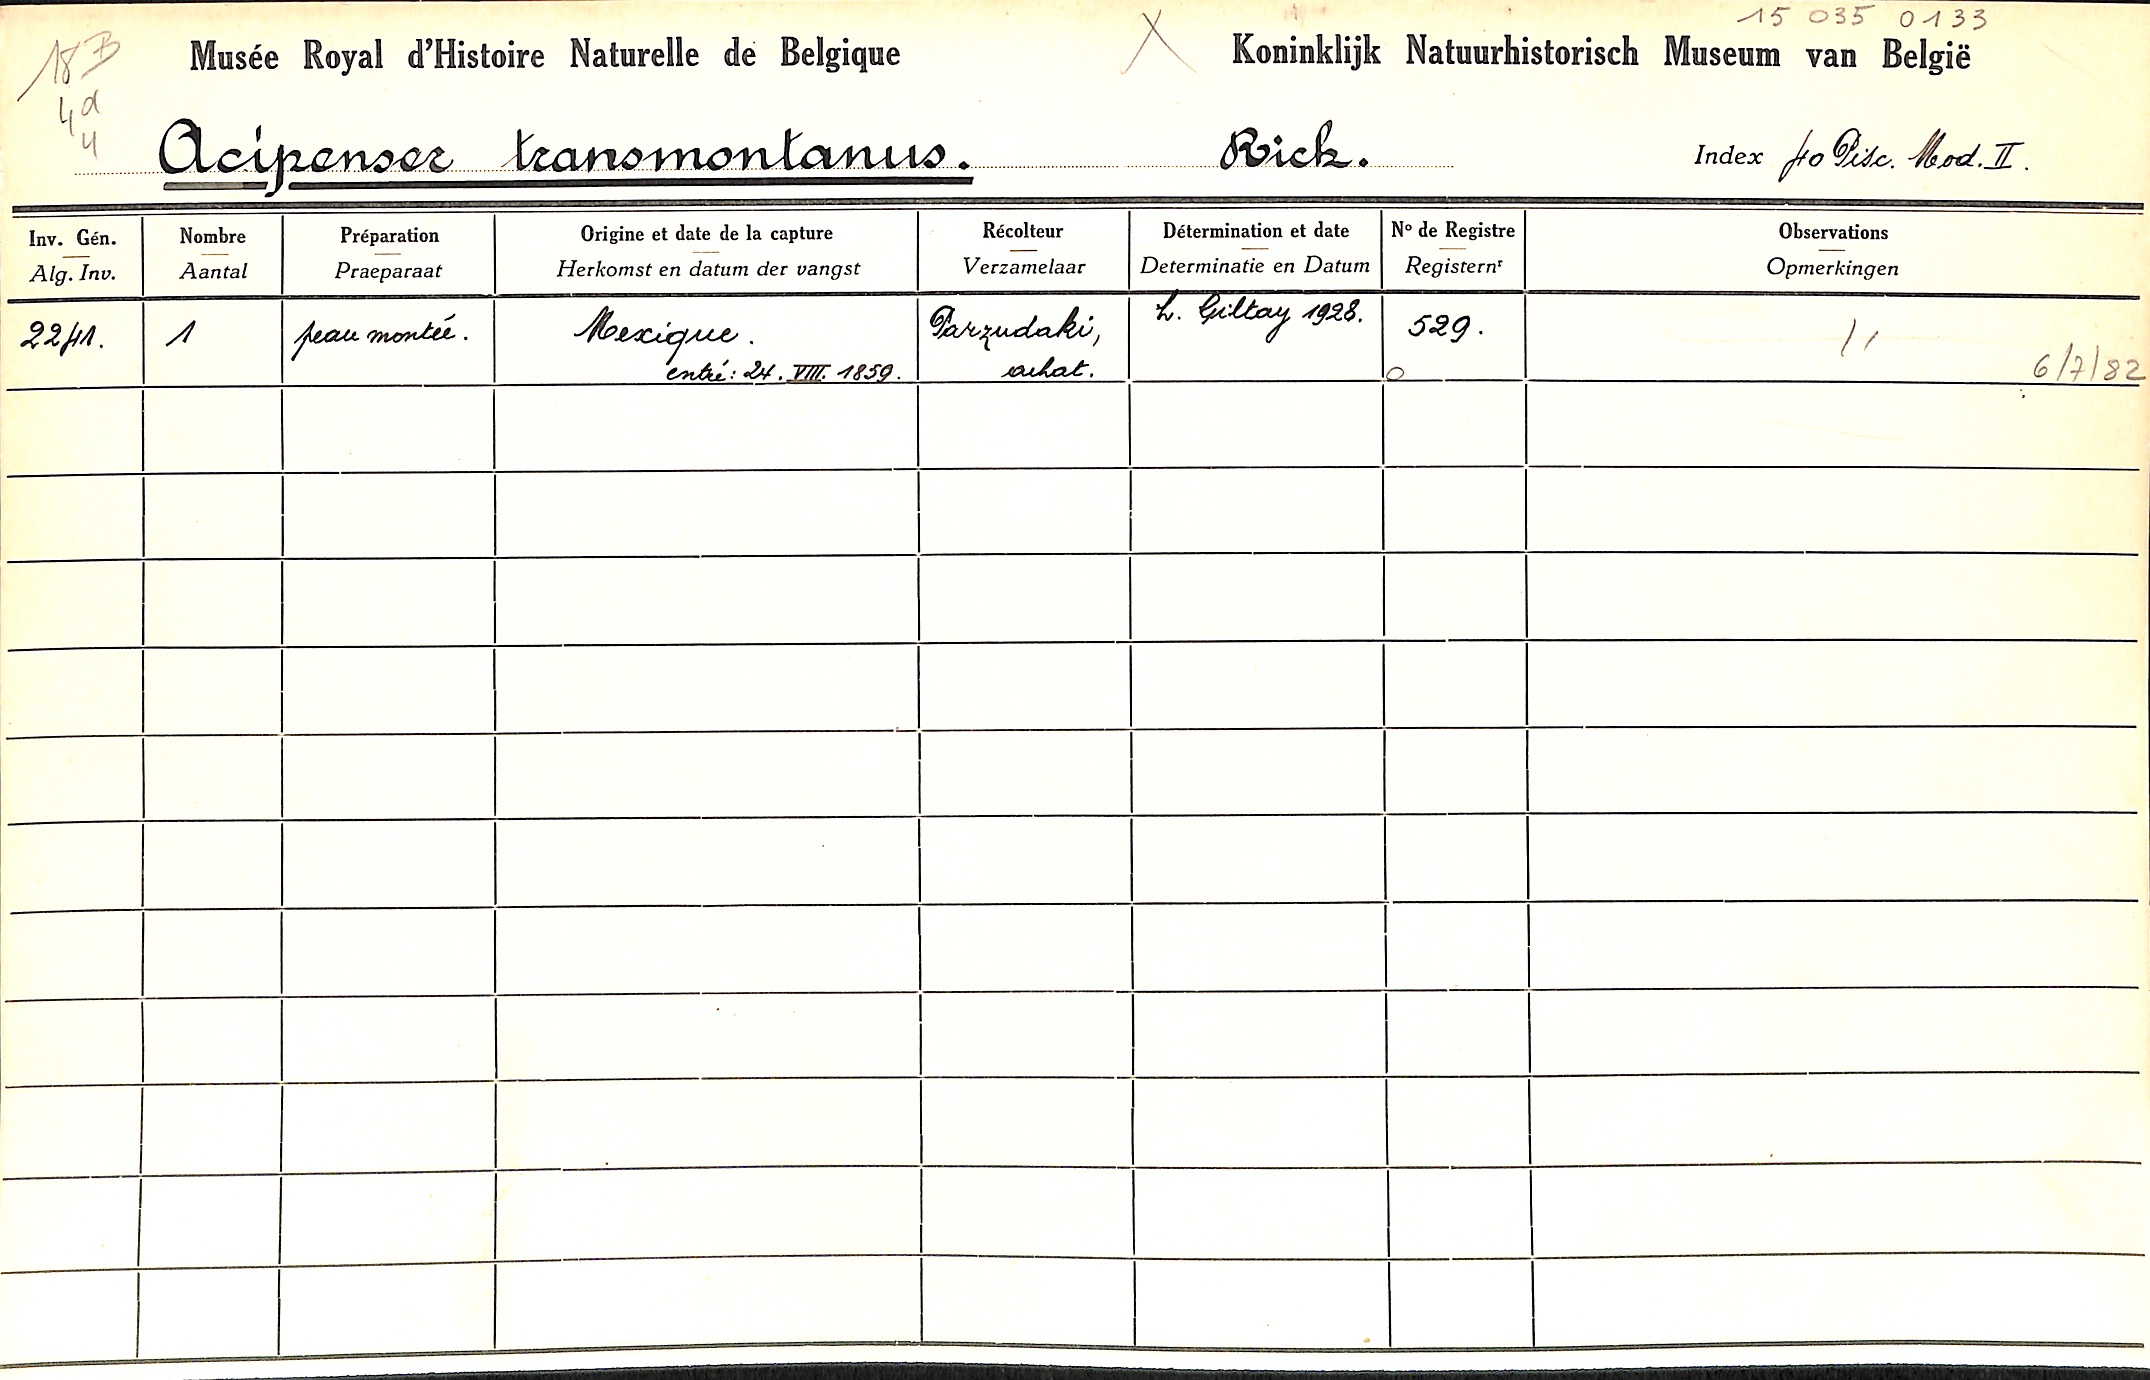 15 035 0133
18B
4d
4
Musée Royal d'Histoire Naturelle de Belgique
X
Koninklijk Natuurhistorisch Museum van België
Acipenser transmontanus. Rick. Index 40 Pisc. Mod. II.
Inv. Gén. Nombre Préparation Origine et date de la capture Récolteur Détermination et date No de Registre Observations
Alg. Inv. Aantal Praeparaat Herkomst en datum der vangst Verzamelaar Determinatie en Datum Registernr Opmerkingen
2241. 1 peau montée. Mexique. Parzudaki, L. Giltay 1928. 529.
entré: 24. VIII. 1859. achat. 6/7/82